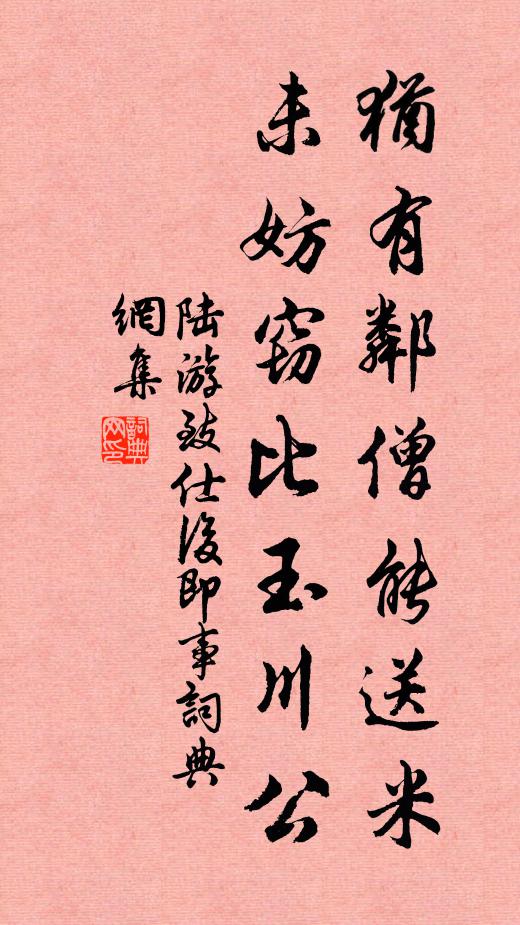 猶有鄰僧能送米
未妨竊比玉川公
陸游致仕後即事詞典
網集
詞典
网印